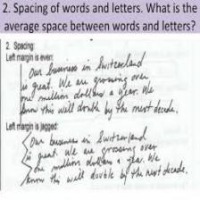 2. Spacing of words and letters. What is the
average space between words and letters?
2. Spacing:
Left margin is even:
Our business in Switzerland
is great. We are grossing over
one million dollars a year. We
know this will double by the next decade.
Left margin is jagged:
Our business in Switzerland
is great. We are grossing over
one million dollars a year. We
know this will double by the next decade.